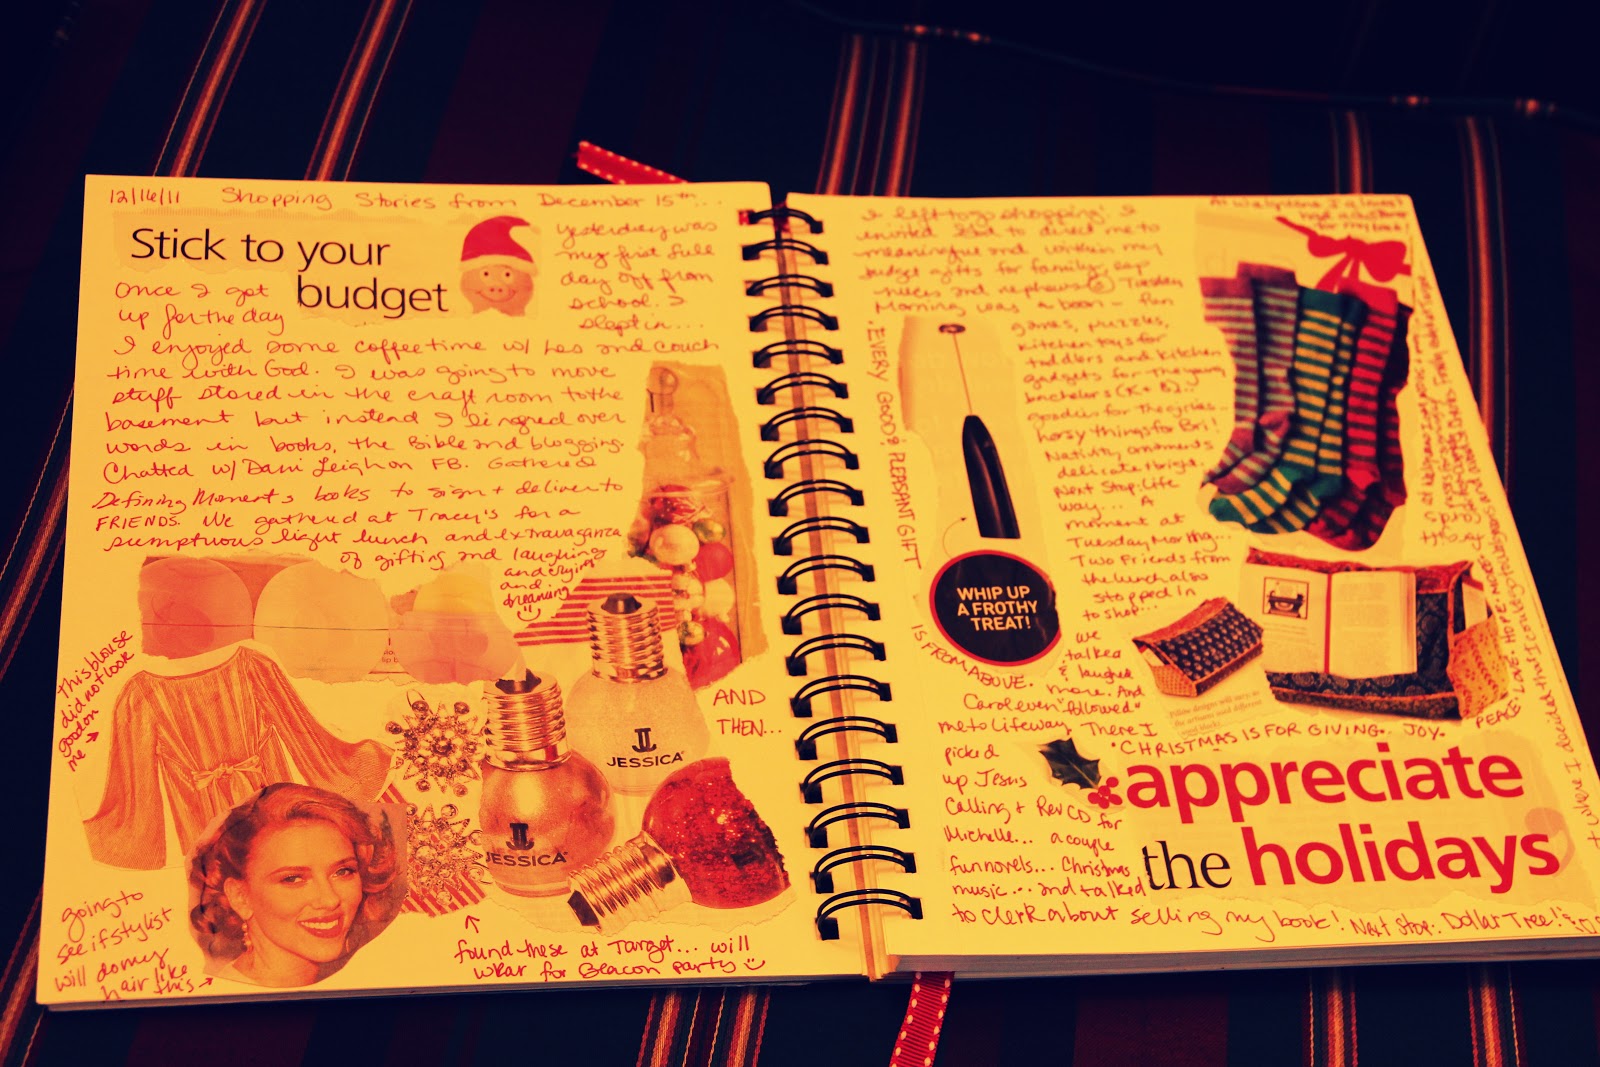 12/16/11 Shopping Stories from December 15th...
Stick to your
budget
yesterday was
my first full
day off from
school. I
slept in...
Once I got
up for the day
I enjoyed some coffee time w/ Les and couch
time with God. I was going to move
stuff stored in the craft room to the
basement but instead I lingered over
words in books, the Bible and blogging.
Chatted w/ Dawn Leigh on FB. Gathered
Defining Moments books to sign + deliver to
FRIENDS. We gathered at Tracey's for a
sumptuous light lunch and extravaganza
of gifting and laughing
and crying
and
dreaming
This blouse
did not look
good on
me →
AND
THEN...
JESSICA
JESSICA
going to
see if stylist
will do my
hair like
this →
found these at Target... will
wear for Beacon party
I left to go shopping! I
invited God to direct me to
meaningful and within my
budget gifts for family, esp
nieces and nephews Tuesday
Morning was a boon - fun
games, puzzles,
kitchen toys for
toddlers and kitchen
gadgets for the young
bachelors (K + B)...
goodies for the girlies...
horsy things for Bri!
Nativity ornaments
delicate + bright.
Next Stop: Life
way... A
moment at
Tuesday Morning...
Two Friends from
the lunch also
stopped in
to shop...
we
talked
& laughed
more. And
Carol even "followed"
me to Lifeway. There I
picked
up Jesus
Calling + Rev CD for
Michelle... a couple
fun novels... Christmas
music... and talked
to clerk about selling my book! Next Stop: Dollar Tree!
.EVERY GOOD & PLEASANT GIFT
IS FROM ABOVE.
WHIP UP
A FROTHY
TREAT!
At Walgreens I
for my back!
CHRISTMAS IS FOR GIVING. JOY.
PEACE. LOVE. HOPE.
appreciate
the holidays